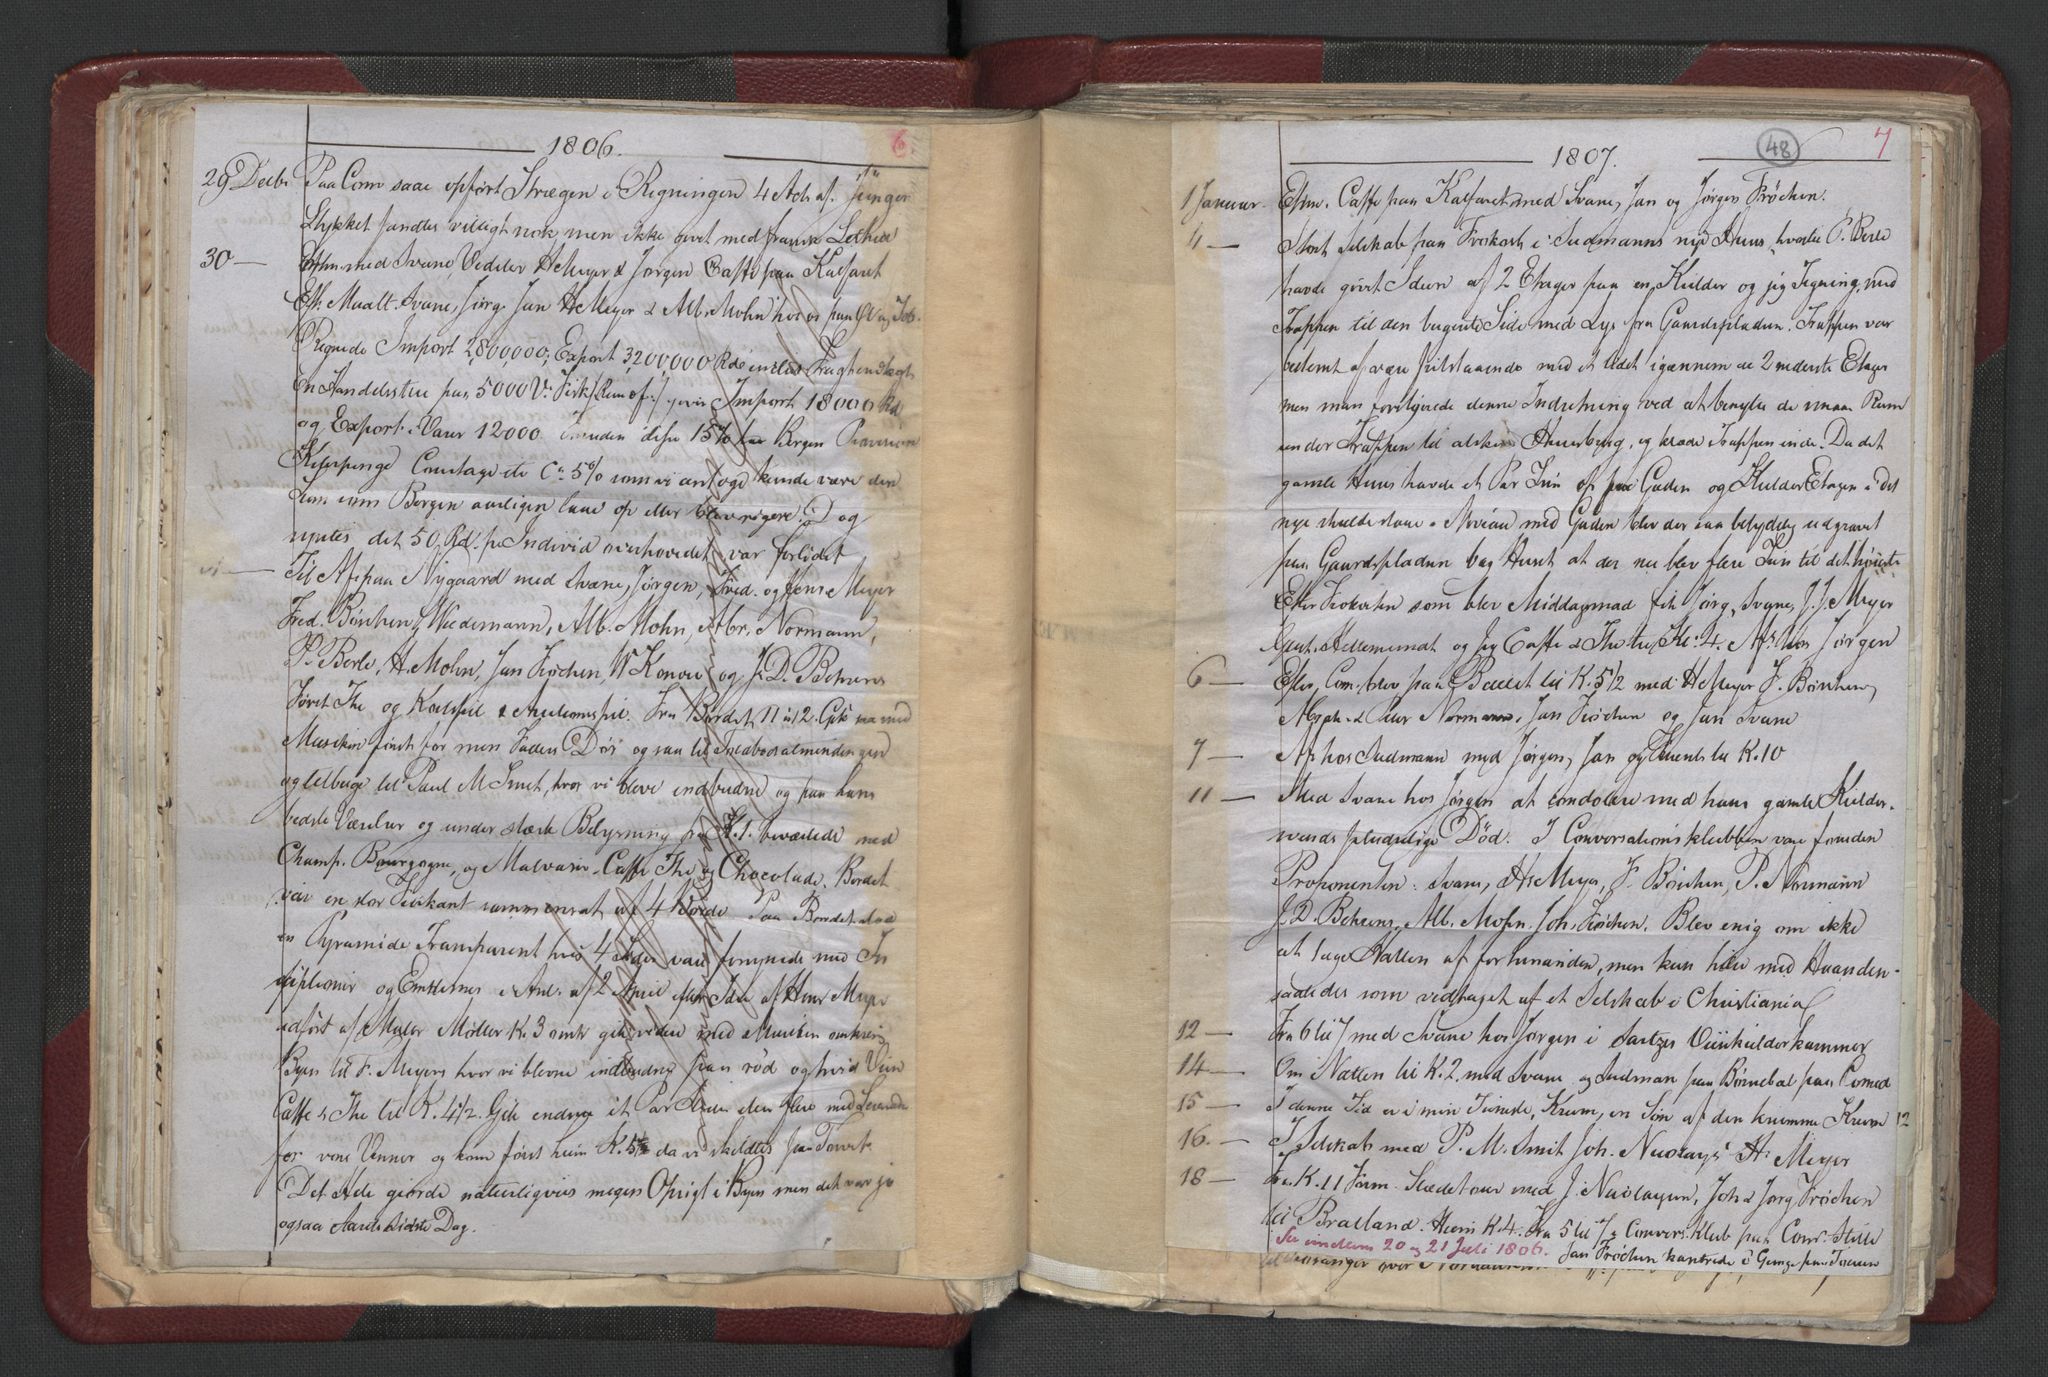 1806.
6.
29 Decbr Paa Com saae opført Strægen i Regningen 4 Act. af Jünger
Stykket fandtes vittigt nok men ikke givet med fransk Lethed
30 — Efm. med Svane, Vedeler H Meyer & Jørgen Caffe paa Kalfaret
Eft. Maalt. Svane, Jørg. Jan H Meyer & Alb. Mohn hos os paa
Regnede Import 2,800,000, Export 3,200,000 Rd
en Handelsstue paa 5000 V. Fisk Import 18000 Rd
og Export Varer 12000 foruden disse 15% Bergen Provision
Courtage etc Ca 5% som vi antoge kunde være den
Sum som Bergen aarligen laae op eller blev rigere. Dog
syntes det 50 Rd. pr Individ overhovedet var forlidet
Til Af. paa Nygaard med Svane, Jørgen, Fred. og Hens. Meyer
Fred. Børchen, Wiedemann, Alb. Mohn, Abr. Normann,
P. Berle, H. Mohn, Jan Frøchen, W Konow og J. D. Behrens
Først The og Kortspil & Auctionsspil. Fra Bordet 11 à 12. Gik saa med
Musiken først for min Faders Dør og saa til
og tilbage til Paul M Smit, hvor vi bleve indbudne og paa hans
bedste Værelser og under stærk Belysning fra K. 1. beværtede med
Champ. Bourgogne, og Malvasir, Caffe The og Chocolade. Bordet
var en stor Firkant sammensat af 4 Borde Paa Bordet stod
en Pyramide Transparent hvis 4 Sider vare forsynede med In
scriptioner og Emblemer i Anl. af 2 April efter Idee af Hens Meyer
udført af Maler Møller K. 3 omtr gik videre med Musiken omkring
Byen til F. Meyers hvor vi bleve indbudne paa rød og hvid Viin
Caffe & The til K. 4 1/2. Gik endnu et Par Steder eller flere med Serenade
for vore Venner og kom først hiem K. 5 1/2 da vi skildtes paa Torvet
Det Hele giorde naturligviis megen Opsigt i Byen men det var jo
ogsaa Aarets sidste Dag.
1807.
48
7
1 Januar. Efm. Caffe paa Kalfaret med Svane, Jan og Jørgen Frøchen.
4 — Stort Selskab paa Frokost i Sudmanns nye Huus, hvortil P. Berle
havde givet Ideen af 2 Etager paa en Kielder og jeg Tegning, med
Trappen til den bageste Side med Lys fra Gaardspladsen. Trappen var
bestemt at være fritstaaende med et Udet igiennem de 2 nederste Etager
men man foretrgerede denne Indretning ved at benytte de smaa Rum
under Trappen til alskens Huusbrug, og klæde Trappen inde. Da det
gamle Huus havde et Par Trin op fra Gaden og KielderEtagen i det
nye skulde staae i Niveau med Gaden blev der saa betydelig udgravet
paa Gaardspladsen bag Huset at der nu blev flere Trin til det høieste
Efter Frokosten som blev Middagsmad fik Jørg, Svane, J. J. Meyer
Gert. Hellemundt og jeg Caffe & The til K. 4. Af. hos Jørgen
6 — Efter Com. blev paa Ballet til K. 5 1/2 med H Meyer F. Børchen,
Abrah. & Peter Normann, Jan Frøchen og Jan Svane
7 — Af hos Sudmann med Jørgen, Jan og Svends til K. 10
11 — Med Svane hos Jørgen at condolere med hans gamle Kielder-
svends pludselige Død. I Conversationsklubben vare foruden
Proponenten: Svane, Hs Meyer, F. Børchen, P. Normann
J. D. Behrens, Alb. Mohn, Joh. Frøchen. Blev enig om ikke
at tage Hatten af for hinanden, men kun hilse med Haanden
saaledes som vedtaget af et Selskab i Christiania
12 — Fra 6 til 7 med Svane hos Jørgen i Viinkielderkammer
14 — Om Natten til K. 2 med Svane og Sudman paa Børnebal paa Comed
15 — I denne Tid er i min Tieneste, Krum, en Søn af den krumme Krum 12
16. — I Selskab med P. M. Smit Joh. Nicolaysn H. Meyer
18 — Fra K. 11 Form. Slædetour med J. Nicolaysen, Joh & Jørg Frøchen
til Bratland. Hiem K. 4. Fra 5 til 7 i Convers. Klub paa Com. Stille
Se imellem 20 og 21 Juli 1806. Jan Frøchen kantrede 2 Gange paa Touren